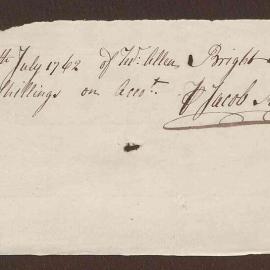 th July 1762 of Wm. Allen Bright
Shillings on Accot. Jacob